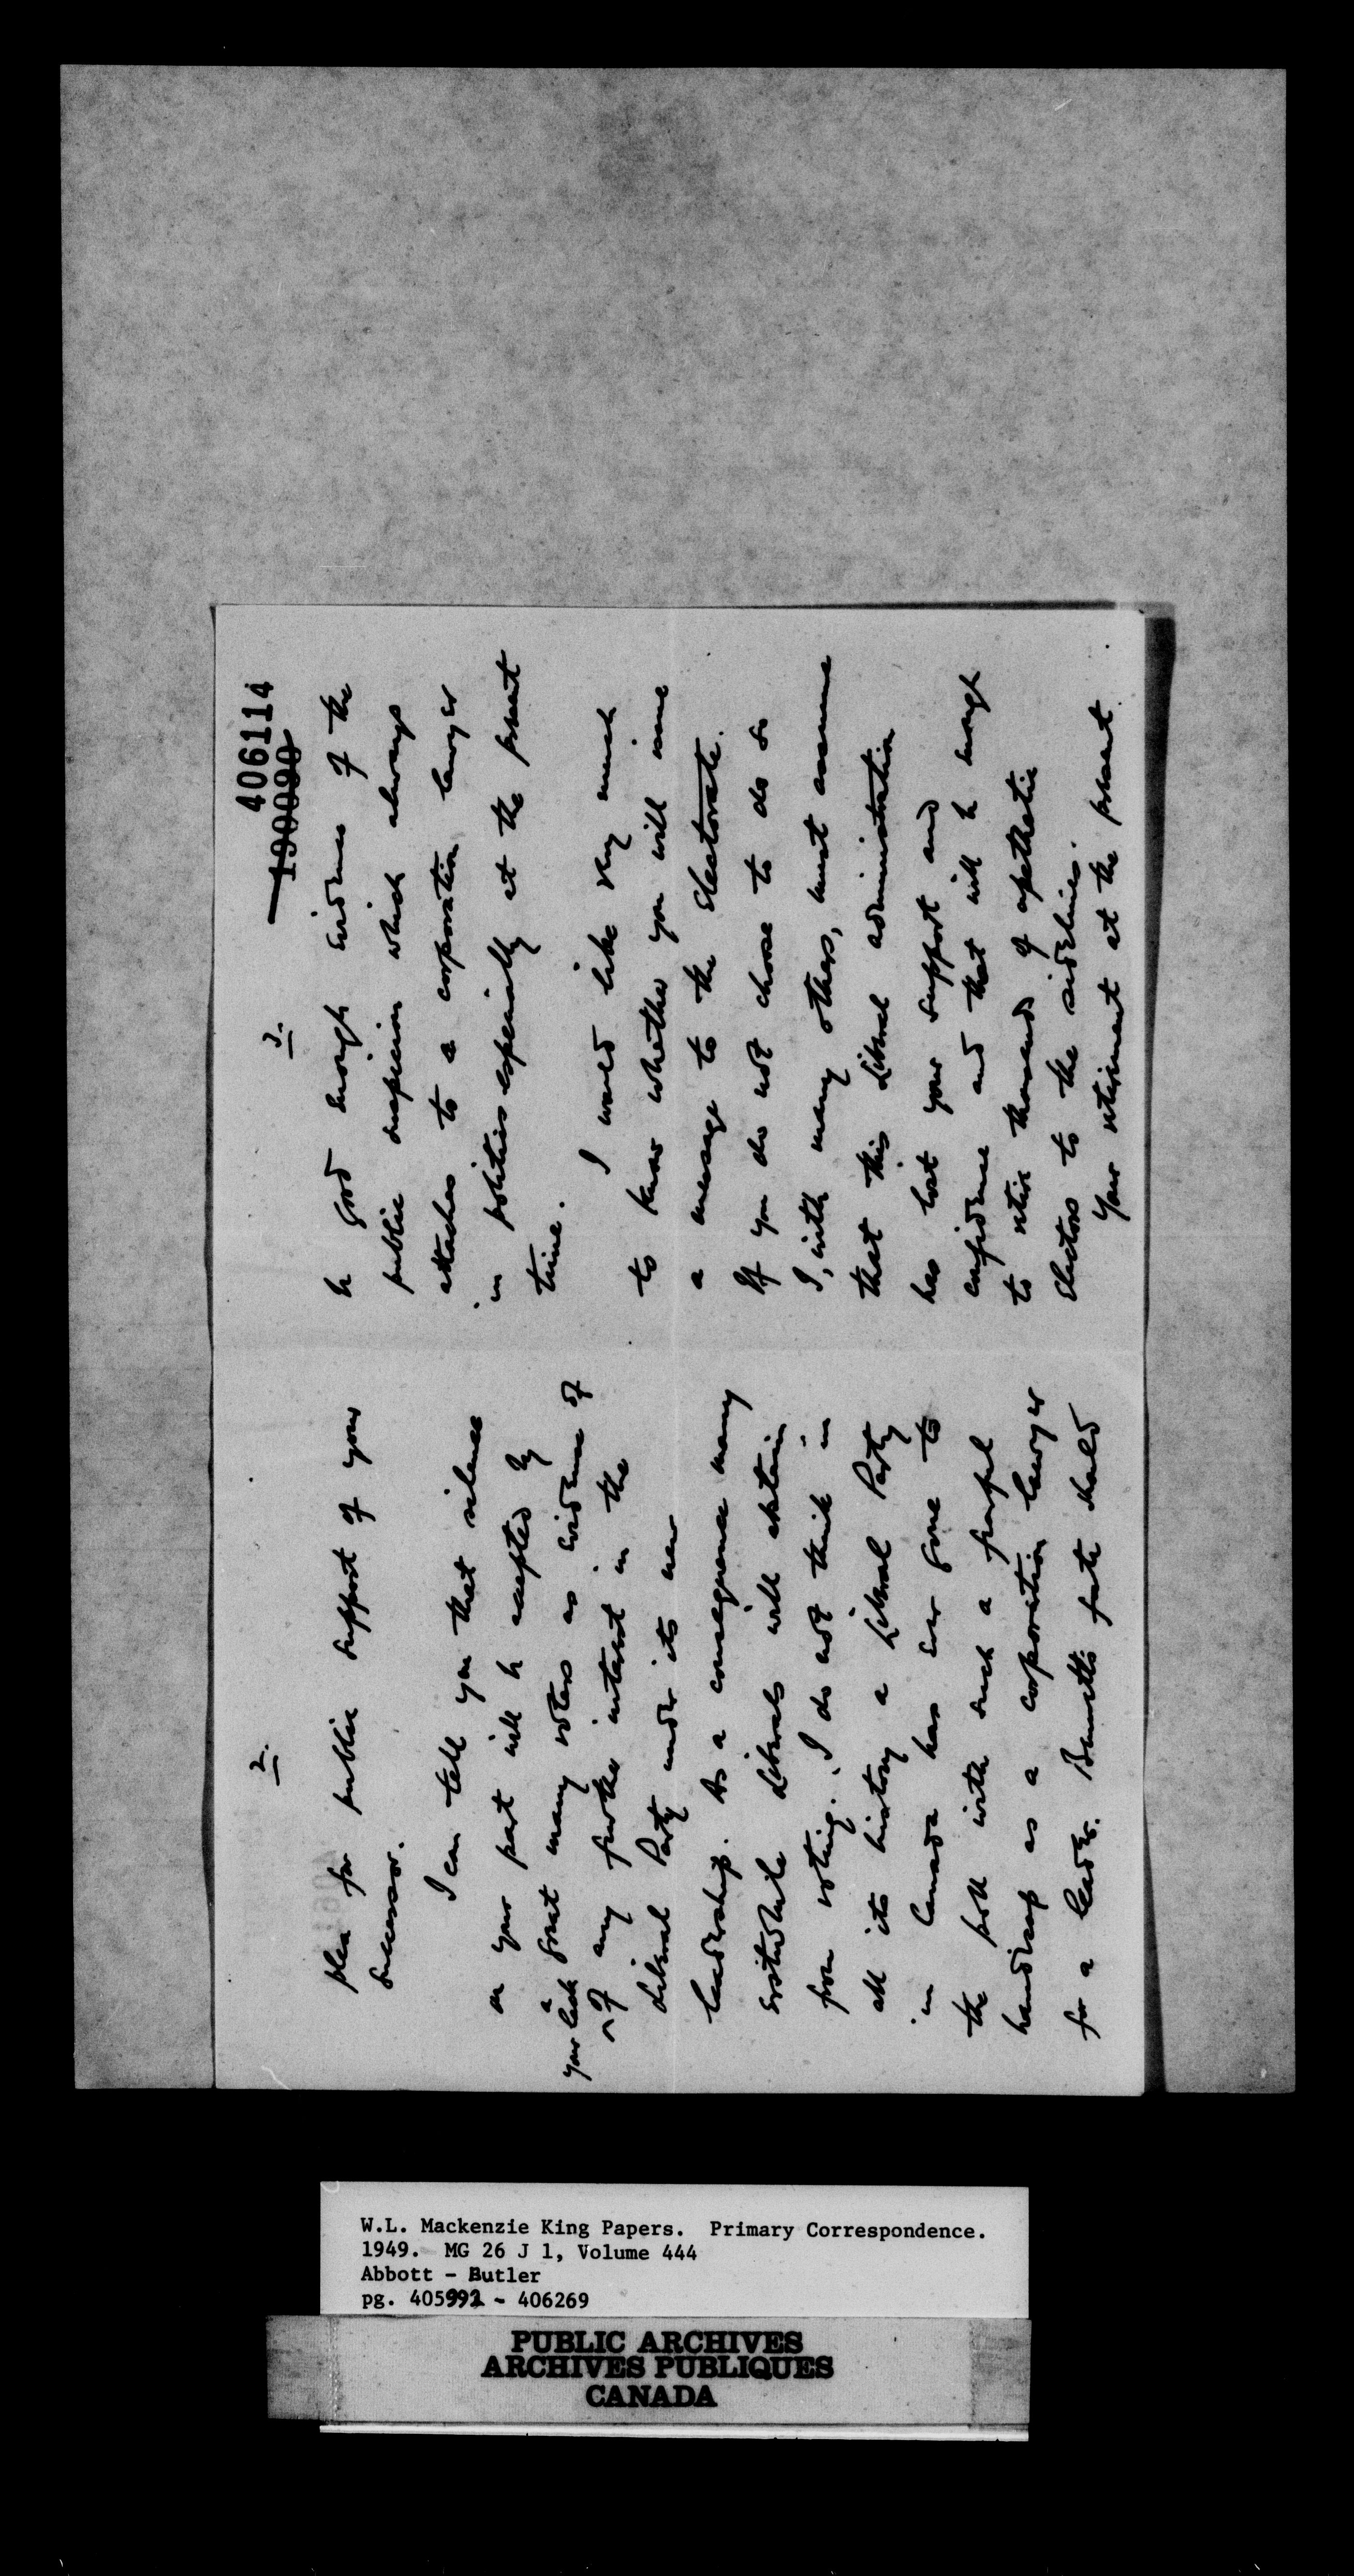 2.
plea for public support of your
successor.
I can tell you that silence
on your part will be accepted by
a great many voters as evidence of
your lack
^ of any further interest in the
Liberal Party under its new
leadership. As a consequence many
erstwhile Liberals will abstain
from voting. I do not think in
all its history a Liberal Party
in Canada has ever gone to
the poll with such a frightful
handicap as a corporation lawyer
for a leader. Bennett's fate should
406114
190090
3.
be good enough evidence of the
public suspicion which always
attaches to a corporation lawyer
in politics especially at the present
time.
I would like very much
to know whether you will issue
a message to the Electorate.
If you do not choose to do so
I, with many others, must assume
that this Liberal administration
has lost your support and
confidence and that will be enough
to retire thousands of apathetic
Electors to the sidelines.
Your retirement at the present
W.L. Mackenzie King Papers. Primary Correspondence.
1949. MG 26 J 1, Volume 444
Abbott - Butler
pg. 405992 - 406269
PUBLIC ARCHIVES
ARCHIVES PUBLIQUES
CANADA